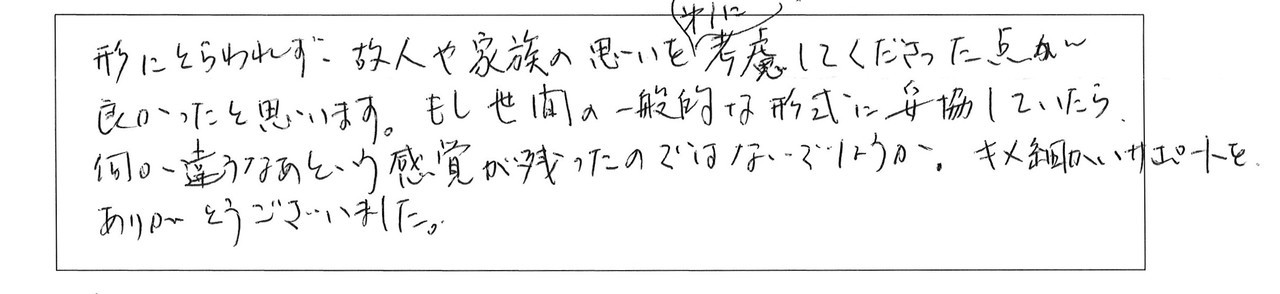 形にとらわれず、故人や家族の思いを第1に考慮してくださった点が
良かったと思います。もし世間の一般的な形式に妥協していたら、
何か違うなあという感覚が残ったのではないでしょうか。キメ細かいサポートを
ありがとうございました。